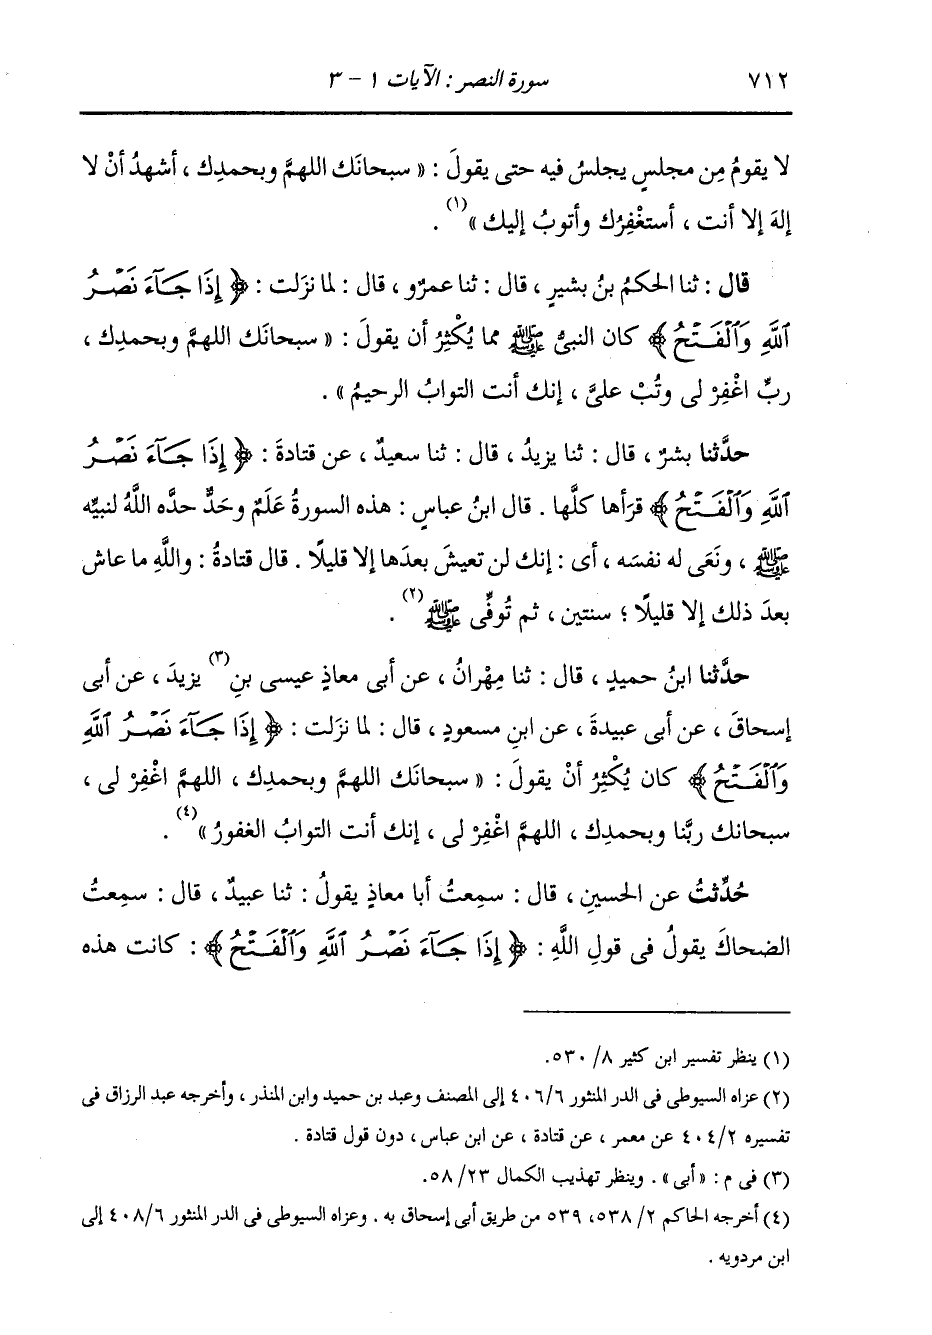 ٧١٢ سورة النصر : الآيات ١ - ٣
لا يقومُ مِن مجلسٍ يجلسُ فيه حتى يقولَ : « سبحانَك اللهمَّ وبحمدِك ، أشهدُ أنْ لا
إلهَ إلا أنت ، أستغْفِرُك وأتوبُ إليك »(١) .
قال : ثنا الحكمُ بنُ بشيرٍ ، قال : ثنا عمرٌو ، قال : لما نزَلت : ﴿ إِذَا جَآءَ نَصْرُ
ٱللَّهِ وَٱلْفَتْحُ ﴾ كان النبىُّ ﷺ مما يُكْثِرُ أن يقولَ : « سبحانَك اللهمَّ وبحمدِك ،
ربِّ اغْفِرْ لى وتُبْ علىَّ ، إنك أنت التوابُ الرحيمُ » .
حدَّثنا بشرٌ ، قال : ثنا يزيدُ ، قال : ثنا سعيدٌ ، عن قتادةَ : ﴿ إِذَا جَآءَ نَصْرُ
ٱللَّهِ وَٱلْفَتْحُ ﴾ قرَأها كلَّها . قال ابنُ عباسٍ : هذه السورةُ عَلَمٌ وحَدٌّ حدَّه اللَّهُ لنبيِّه
ﷺ ، ونَعَى له نفسَه ، أى : إنك لن تعيشَ بعدَها إلا قليلًا . قال قتادةُ : واللَّهِ ما عاش
بعدَ ذلك إلا قليلًا ؛ سنتين ، ثم تُوفِّى ﷺ(٢) .
حدَّثنا ابنُ حميدٍ ، قال : ثنا مِهْرانُ ، عن أبى معاذٍ عيسى بنِ(٣) يزيدَ ، عن أبى
إسحاقَ ، عن أبى عبيدةَ ، عن ابنِ مسعودٍ ، قال : لما نزَلت : ﴿ إِذَا جَآءَ نَصْرُ ٱللَّهِ
وَٱلْفَتْحُ ﴾ كان يُكْثِرُ أنْ يقولَ : « سبحانَك اللهمَّ وبحمدِك ، اللهمَّ اغْفِرْ لى ،
سبحانك ربَّنا وبحمدِك ، اللهمَّ اغْفِرْ لى ، إنك أنت التوابُ الغفورُ »(٤) .
حُدِّثتُ عن الحسينِ ، قال : سمِعتُ أبا معاذٍ يقولُ : ثنا عبيدٌ ، قال : سمِعتُ
الضحاكَ يقولُ فى قولِ اللَّهِ : ﴿ إِذَا جَآءَ نَصْرُ ٱللَّهِ وَٱلْفَتْحُ ﴾ : كانت هذه
(١) ينظر تفسير ابن كثير ٨/ ٥٣٠.
(٢) عزاه السيوطى فى الدر المنثور ٤٠٦/٦ إلى المصنف وعبد بن حميد وابن المنذر ، وأخرجه عبد الرزاق فى
تفسيره ٤٠٤/٢ عن معمر ، عن قتادة ، عن ابن عباس ، دون قول قتادة .
(٣) فى م : « أبى » . وينظر تهذيب الكمال ٢٣/ ٥٨.
(٤) أخرجه الحاكم ٢/ ٥٣٨، ٥٣٩ من طريق أبى إسحاق به . وعزاه السيوطى فى الدر المنثور ٤٠٨/٦ إلى
ابن مردويه .